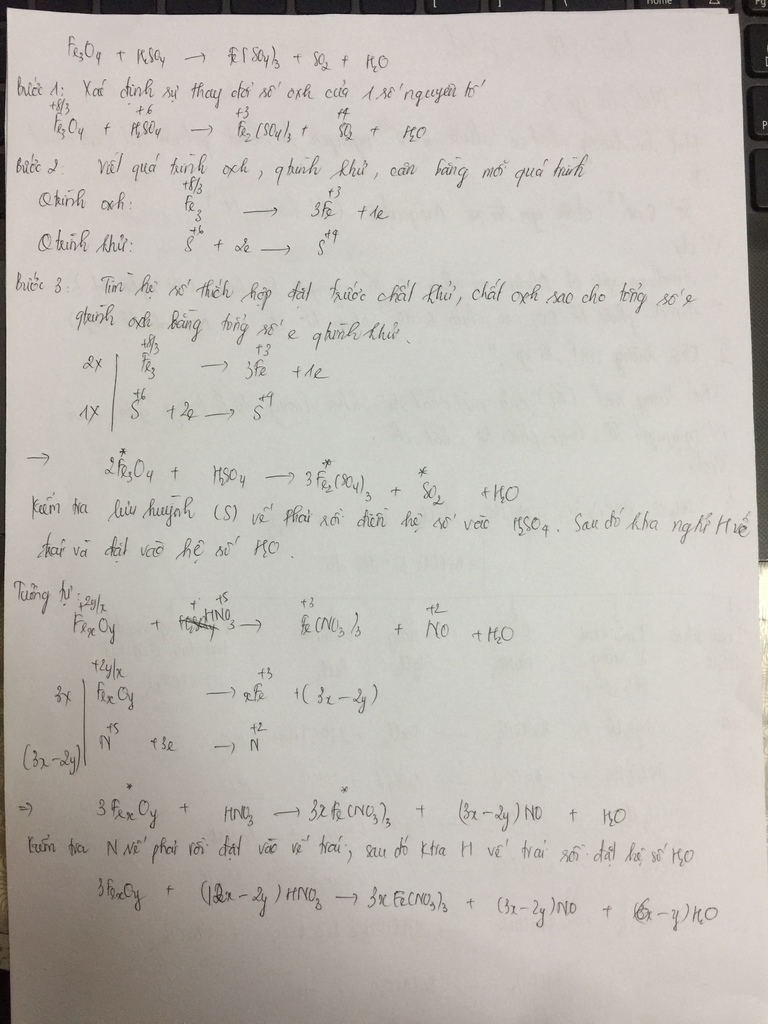 Fe3O4 + H2SO4 → Fe(SO4)3 + SO2 + H2O
Bước 1: Xác định sự thay đổi số oxh của 1 số nguyên tố
+8/3 +6 +3 +4
Fe3O4 + H2SO4 → Fe2(SO4)3 + SO2 + H2O
Bước 2: Viết quá trình oxh, qtrình khử, cân bằng mỗi quá trình
+8/3 +3
Qtrình oxh: Fe3 → 3Fe + 1e
+6 +4
Qtrình khử: S + 2e → S
Bước 3: Tìm hệ số thích hợp đặt trước chất khử, chất oxh sao cho tổng số e
qtrình oxh bằng tổng số e qtrình khử.
+8/3 +3
2x Fe3 → 3Fe + 1e
+6 +4
1x S + 2e → S
→ 2Fe3O4 + H2SO4 → 3Fe2(SO4)3 + SO2 + H2O
Kiểm tra lưu huỳnh (S) vế phải rồi điền hệ số vào H2SO4. Sau đó kha nghỉ H vế
trái và đặt vào hệ số H2O.
Tương tự:
+2y/x +5 +3 +2
FexOy + HNO3 → Fe(NO3)3 + NO + H2O
+2y/x +3
3x FexOy → xFe + (3x-2y)
+5 +2
(3x-2y) N + 3e → N
⇒ 3FexOy + HNO3 → 3xFe(NO3)3 + (3x-2y)NO + H2O
Kiểm tra N vế phải rồi đặt vào vế trái, sau đó ktra H vế trái rồi đặt hệ số H2O
3FexOy + (12x-2y)HNO3 → 3xFe(NO3)3 + (3x-2y)NO + (6x-y)H2O